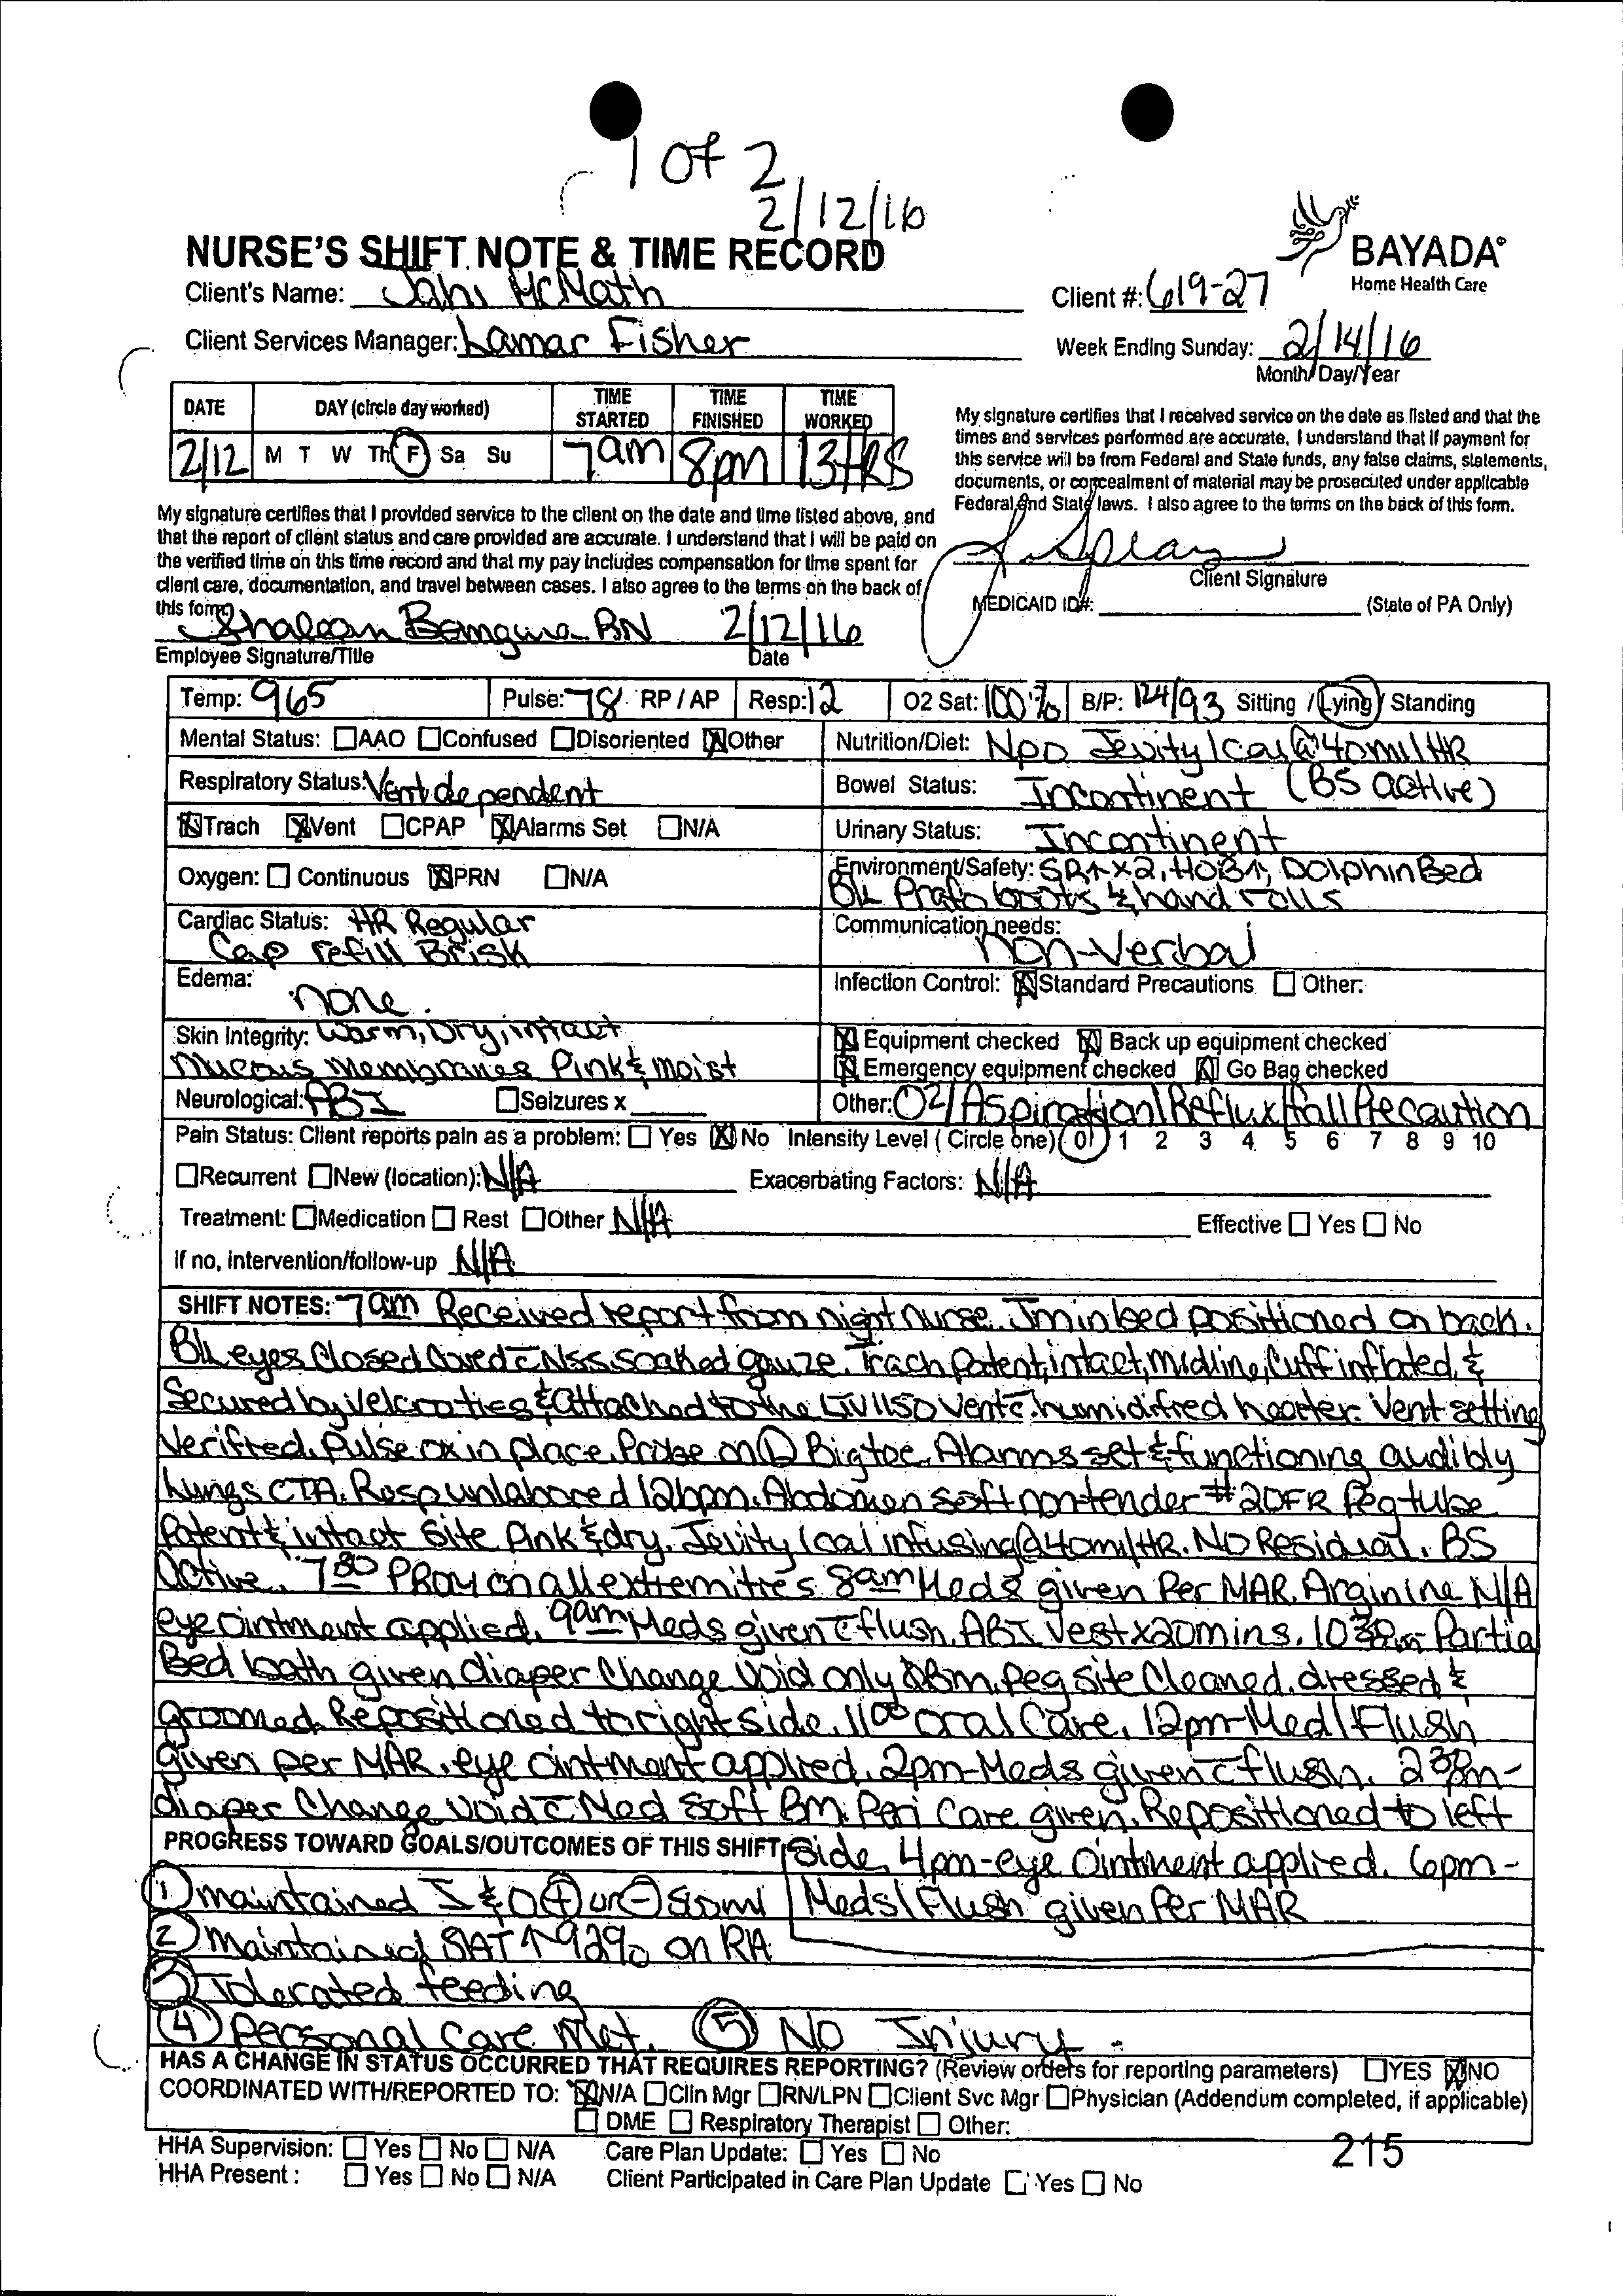 1 of 2
2/12/16
NURSE'S SHIFT NOTE & TIME RECORD
BAYADA®
Home Health Care
Client's Name: Jahi McMath Client #: 619-27
Client Services Manager: Lamar Fisher Week Ending Sunday: 2/14/16
Month/Day/Year
DATE DAY (circle day worked) TIME STARTED TIME FINISHED TIME WORKED
2/12 M T W Th F Sa Su 7am 8pm 13HRS
My signature certifies that I received service on the date as listed and that the
times and services performed are accurate. I understand that if payment for
this service will be from Federal and State funds, any false claims, statements,
documents, or concealment of material may be prosecuted under applicable
Federal and State laws. I also agree to the terms on the back of this form.
My signature certifies that I provided service to the client on the date and time listed above, and
that the report of client status and care provided are accurate. I understand that I will be paid on
the verified time on this time record and that my pay includes compensation for time spent for
client care, documentation, and travel between cases. I also agree to the terms on the back of
this form.
Client Signature
MEDICAID ID#: (State of PA Only)
RN 2/12/16
Employee Signature/Title Date
Temp: 965 Pulse: 78 RP / AP Resp: 12 O2 Sat: 100% B/P: 124/93 Sitting / Lying / Standing
Mental Status: ☐AAO ☐Confused ☐Disoriented ☒Other Nutrition/Diet: NPO Jevity 1cal @ 40ml/HR
Respiratory Status: Vent dependent Bowel Status: Incontinent (BS active)
☒Trach ☒Vent ☐CPAP ☒Alarms Set ☐N/A Urinary Status: Incontinent
Oxygen: ☐ Continuous ☒PRN ☐N/A Environment/Safety: SR↑x2, HOB↑, Dolphin Bed
B/L Prafo boots & hand rolls
Cardiac Status: HR Regular
Cap refill Brisk
Communication needs: non-Verbal
Edema: none. Infection Control: ☒Standard Precautions ☐ Other:
Skin Integrity: Warm, Dry, intact
Mucous Membranes Pink & moist
☒ Equipment checked ☒ Back up equipment checked
☒ Emergency equipment checked ☒ Go Bag checked
Neurological: ABI ☐Seizures x Other: O2/Aspiration/Reflux/fall Precaution
Pain Status: Client reports pain as a problem: ☐ Yes ☒ No Intensity Level ( Circle one) 0 1 2 3 4 5 6 7 8 9 10
☐Recurrent ☐New (location): N/A Exacerbating Factors: N/A
Treatment: ☐Medication ☐ Rest ☐Other N/A Effective ☐ Yes ☐ No
If no, intervention/follow-up N/A
SHIFT NOTES: 7am Received report from night nurse. Jm in bed positioned on back.
B/L eyes Closed Coved c̄ NSS soaked gauze. Trach Patent, intact, midline, Cuff inflated, &
Secured by Velcro ties & attached to the LTV1150 vent c̄ humidified heater. Vent setting
Verified. Pulse ox in place. Probe on Ⓛ Big toe. Alarms set & functioning audibly
Lungs CTA. Resp unlabored 12bpm. Abdomen soft nontender #20FR Peg tube
Patent & intact Site Pink & dry. Jevity 1cal infusing @ 40ml/HR. NO Residual. BS
Active. 7³⁰ PROM on all extremities 8am Meds given Per MAR. Arginine N/A
eye ointment applied. 9am Meds given c̄ flush, ABI Vest x20mins. 10³⁰am Partial
Bed bath given diaper Change Void only ØBm. Peg site Cleaned, dressed &
groomed. Repositioned to right side. 11⁰⁰ oral Care. 12pm-Med/Flush
given per MAR. eye ointment applied. 2pm-Meds given c̄ flush. 2³⁰pm-
diaper Change void c̄ Med Soft BM. Peri Care given. Repositioned to left
side. 4pm-eye Ointment applied. 6pm-
Meds/Flush given Per MAR
PROGRESS TOWARD GOALS/OUTCOMES OF THIS SHIFT:
① maintained I & O ⊕ or ⊖ 50ml
② Maintained SAT ↑ 92% on RA
③ Tolerated feeding
④ Personal Care Met. ⑤ NO Injury.
HAS A CHANGE IN STATUS OCCURRED THAT REQUIRES REPORTING? (Review orders for reporting parameters) ☐YES ☒NO
COORDINATED WITH/REPORTED TO: ☒N/A ☐Clin Mgr ☐RN/LPN ☐Client Svc Mgr ☐Physician (Addendum completed, if applicable)
☐ DME ☐ Respiratory Therapist ☐ Other:
HHA Supervision: ☐ Yes ☐ No ☐ N/A Care Plan Update: ☐ Yes ☐ No
215
HHA Present : ☐ Yes ☐ No ☐ N/A Client Participated in Care Plan Update ☐ Yes ☐ No